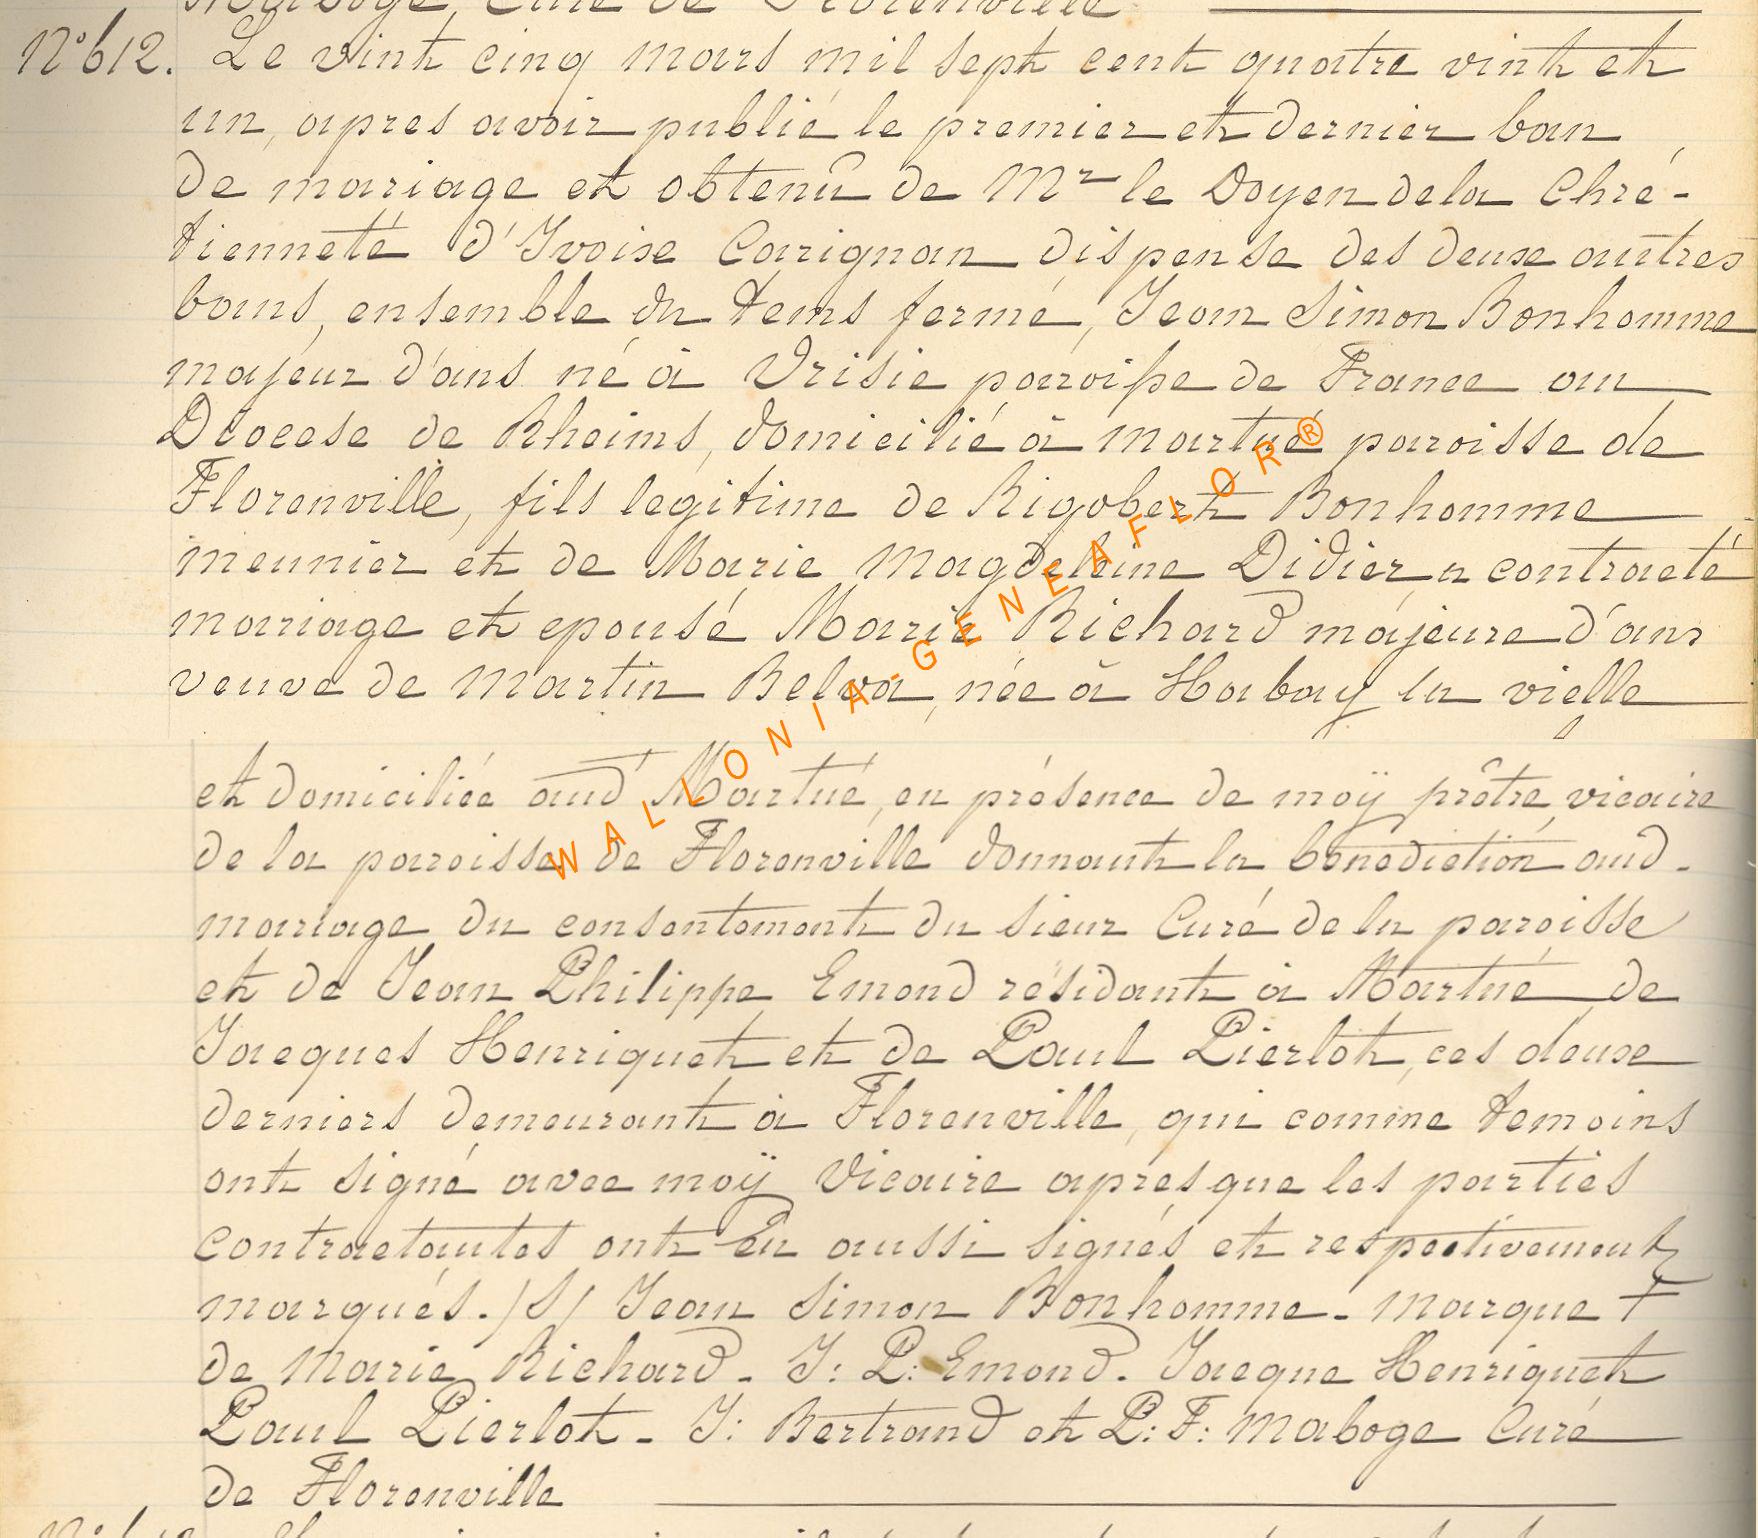 Maboge, Curé de Florenville
N° 612. Le vint cinq mars mil sept cent quatre vint et
un, apres avoir publié le premier et dernier ban
de mariage et obtenû de Mr le Doyen de la Chré-
tienneté d'Ivoise Carignan dispense des deux autres
bans, ensemble du tems fermé, Jean Simon Bonhomme
majeur d'ans né à Vrisie paroisse de France au
Diocese de Rheims, domicilié à Martué paroisse de
Florenville, fils legitime de Rigobert Bonhomme
meunier et de Marie Magdeleine Didier a contracté
mariage et epousé Marie Richard majeure d'ans
veuve de Martin Belva, née à Habay la vielle
et domiciliée aud Martué, en présence de moÿ prêtre, vicaire
de la paroisse de Florenville donnant la bénédiction aud.
mariage du consentement du sieur Curé de la paroisse
et de Jean Philippe Emond résidant à Martué de
Jacques Henriquet et de Paul Pierlot, ces deux
derniers demeurant à Florenville, qui comme temoins
ont signé avec moÿ Vicaire après que les parties
contractantes ont eu aussi signés et respectivement
marqués. /S/ Jean Simon Bonhomme - marque +
de Marie Richard - J: P: Emond. Jacque Henriquet
Paul Pierlot - J: Bertrand et P: F: Maboge Curé
de Florenville
WALLONIA-GENEAFLOR®